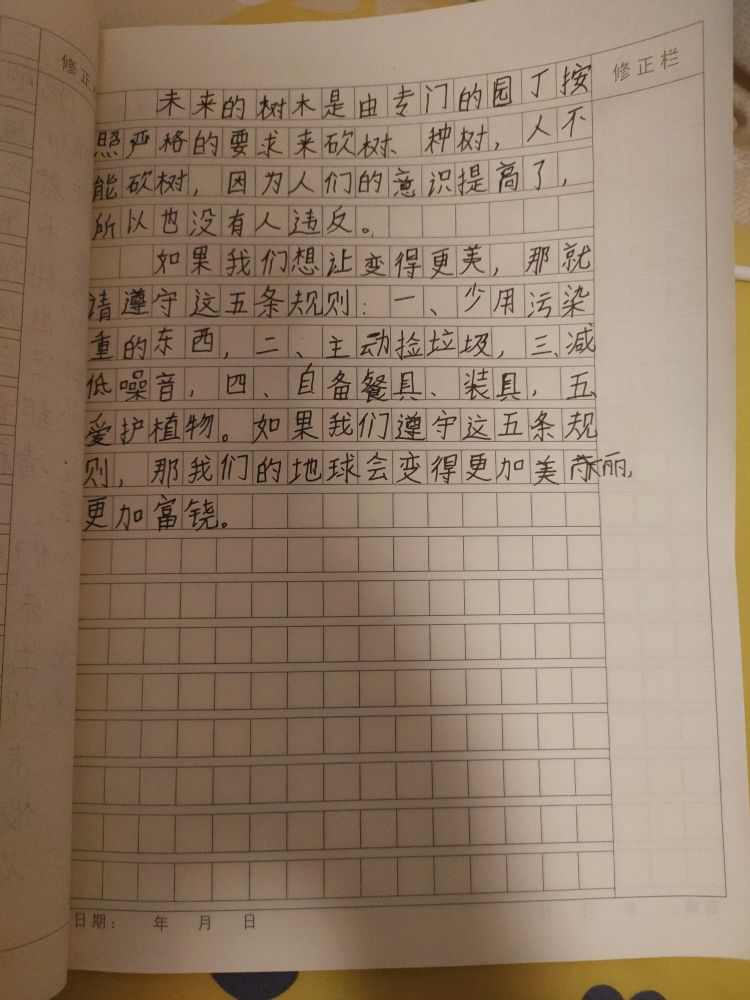 修正栏
修正栏
未来的树木是由专门的园丁按
照严格的要求来砍树、种树，人不
能砍树，因为人们的意识提高了，
所以也没有人违反。
如果我们想让变得更美，那就
请遵守这五条规则：一、少用污染
重的东西，二、主动捡垃圾，三、减
低噪音，四、自备餐具、装具，五、
爱护植物。如果我们遵守这五条规
则，那我们的地球会变得更加美丽，
更加富饶。
日期： 年 月 日